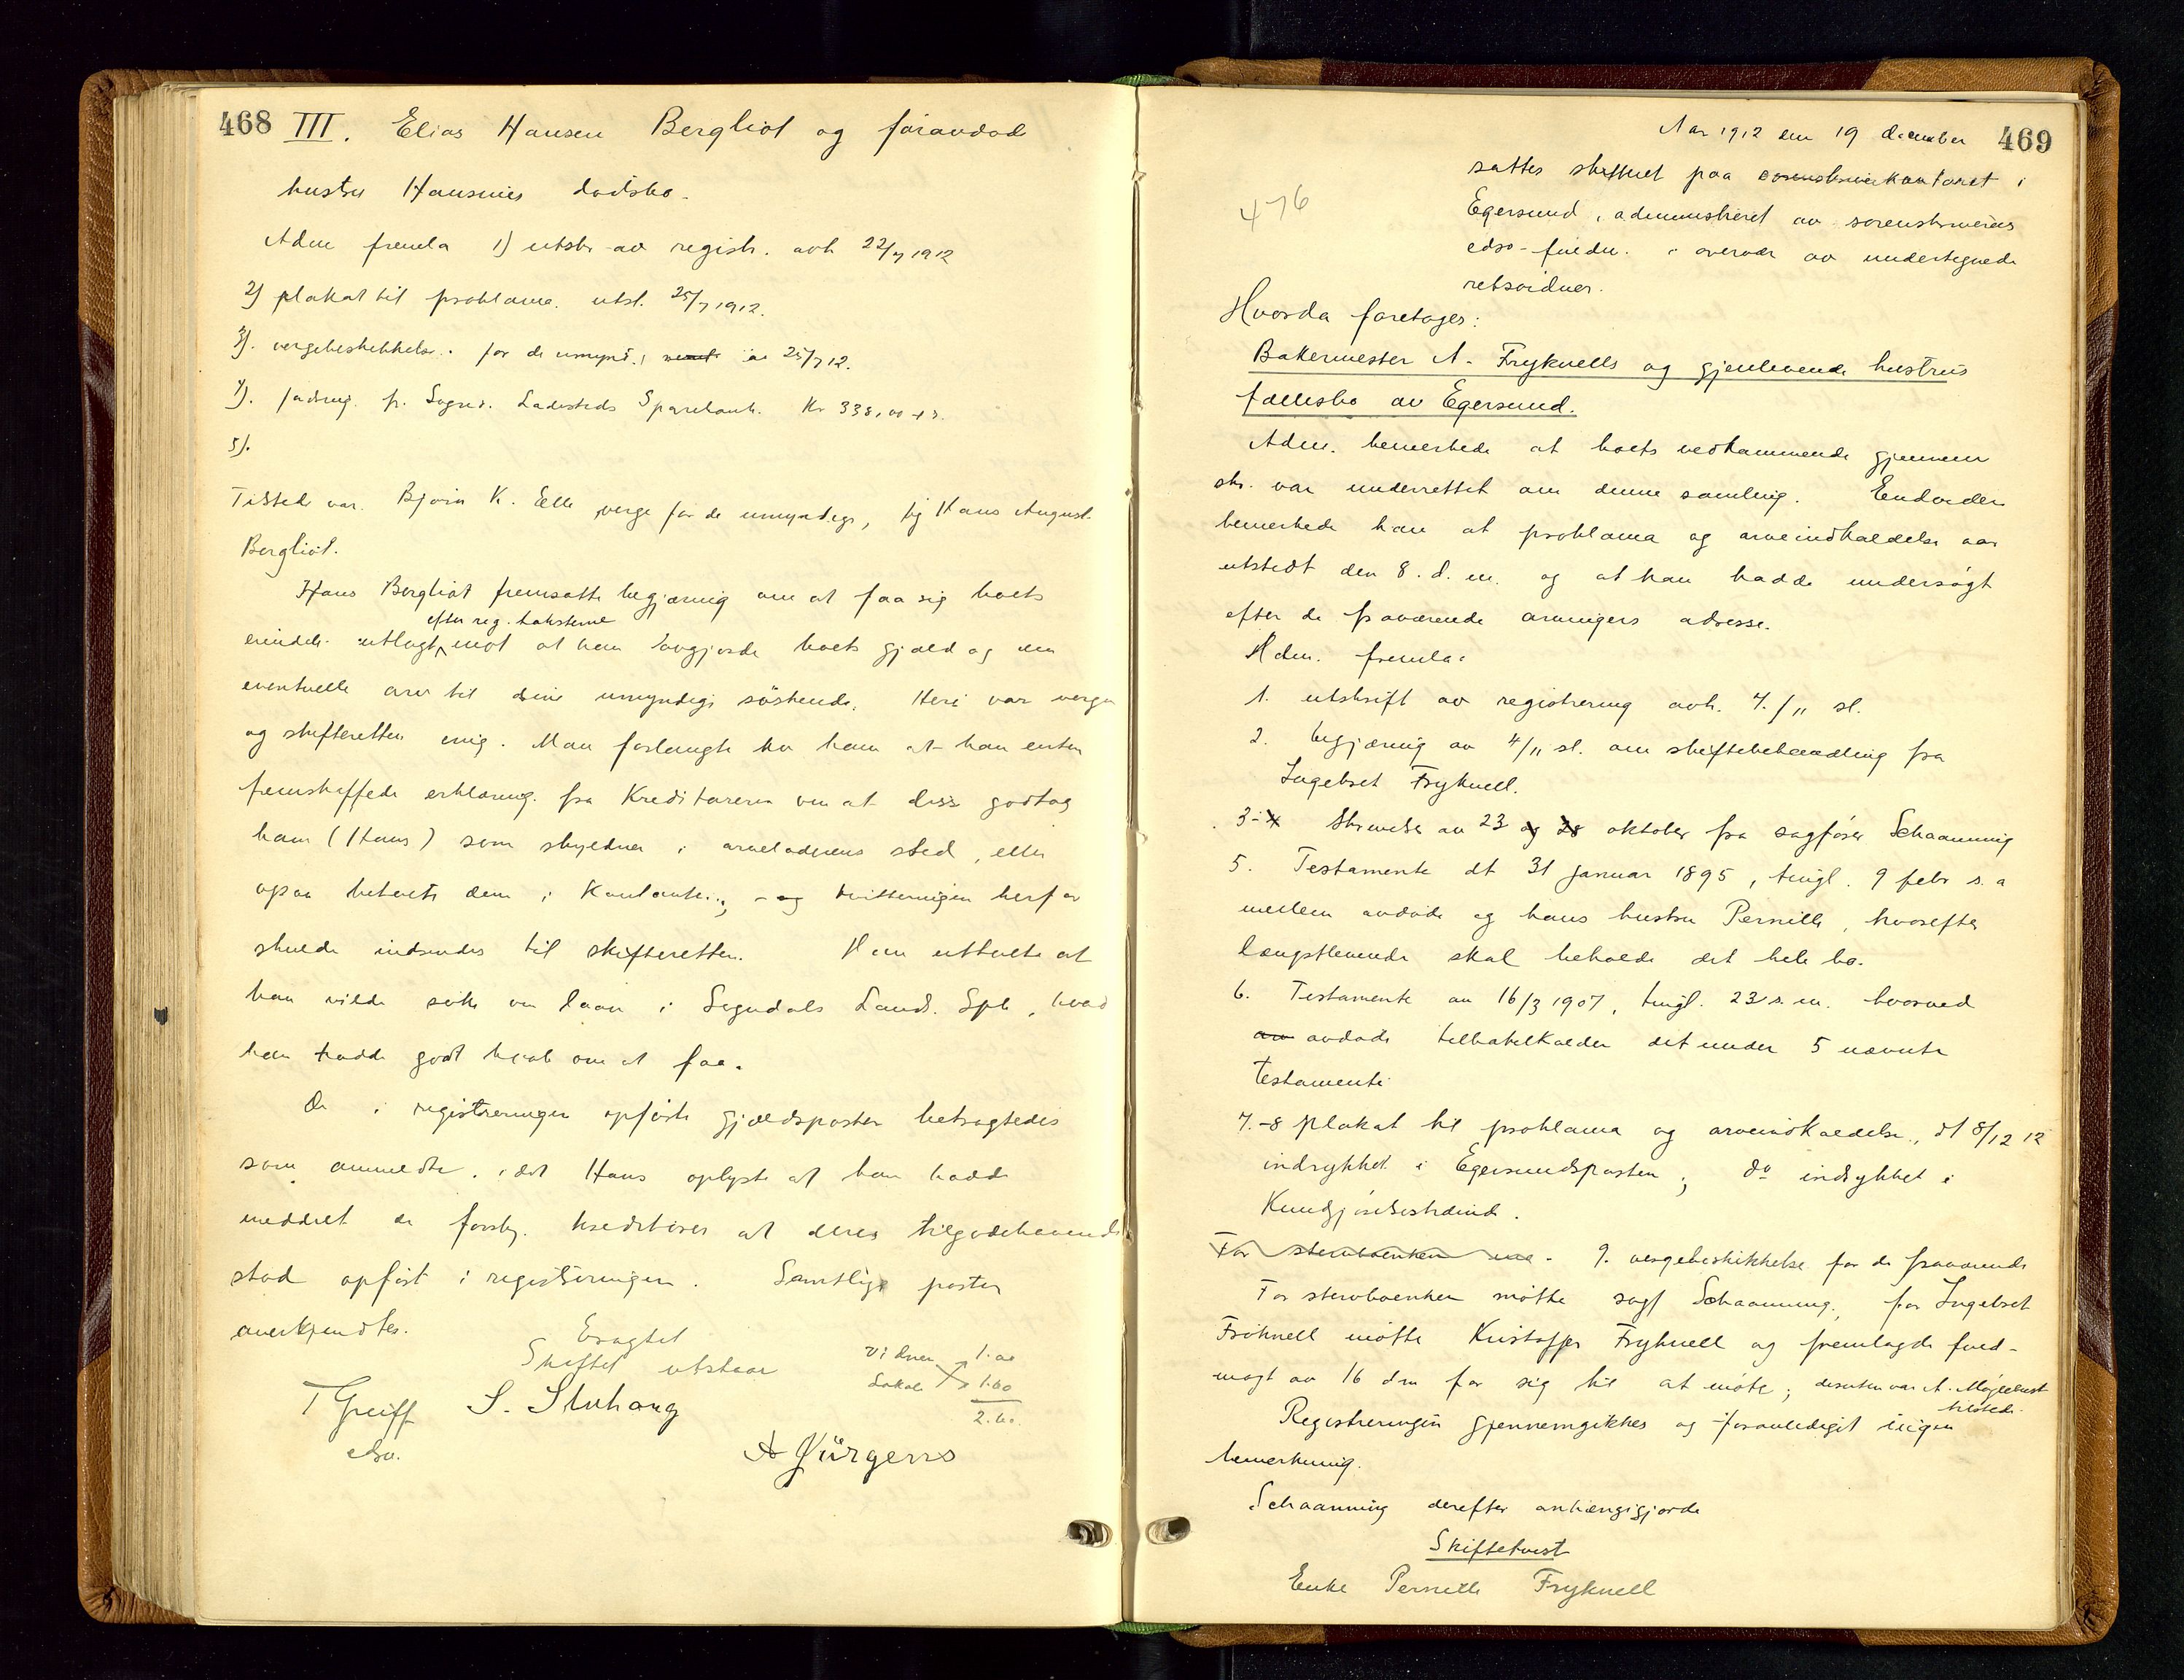 468 III. Elias Hansen Bergliot og foravdöd
hustru Hansines dödsbo.
Adm fremla 1) utskr av registr. avh 22/7 1912
2) plakat til proklama. utst. 25/7 1912.
3). vergebeskikkelse. for de umynd. 25/7 12.
4). fra Sognd. Ladesteds Sparebank. Kr 338,00 + r.
5).
Tilsted var. Björn K. Elle, verge for de umyndige, Hans August
Bergliot.
Hans Bergliot fremsatte begjæring om at faa sig boets
efter reg. taksterne
eiendele utlagt, mot at han avgjorde boets gjæld og den
eventuelle arv til sine umyndige söskende. Heri var vergen
og skifteretten enig. Man forlangte av ham at han enten
fremskaffede erklæring fra Kreditorerne om at disse godtog
ham (Hans) som skyldner i arveladerens sted, eller
ogsaa betalte dem i Kontante.; - og kvitteringen herfor
skulde indsendes til skifteretten. Han uttalte at
han vilde söke om laan i Sogndals Lands. Spb, hvad
han hadde godt haab om at faa.
De i registreringen opförte gjældsposter betragtedes
som anmeldte, idet Hans oplyste at han hadde
meddelt de forskj. kreditorer at deres tilgodehavende
stod opfört i registreringen. Samtlige poster
anerkjendtes.
Eragtet
Skiftet utstaar
Vidner 1.00
Lokale 1.60
2.60.
T Greiff S. Stuhaug
edsv.
A Jürgens
Aar 1912 den 19 december 469
476
sattes skifteret paa sorenskriverkontoret i
Egersund, administreret av sorenskriverens
edsv-fuldm. i overvær av undertegnede
retsvidner.
Hvorda foretoges:
Bakermester A. Fryknells og gjenlevende hustrus
fællesbo av Egersund.
Adm. bemerkede at boets vedkommende gjennem
skr. var underrettet om denne samling. Endvidere
bemerkede han at proklama og arveindkaldelse var
utstedt den 8. d. m. og at han hadde undersögt
efter de fraværende arvingers adresse.
Adm. fremla:
1. utskrift av registrering avh. 7./11 sl.
2. begjæring av 4/11 sl. om skiftebehandling fra
Ingebret Fryknell.
3-4 Skrivelse av 23 og 28 oktober fra sagförer Schaanning
5. Testamente dt 31 januar 1895, tingl. 9 febr s. a
mellem avdöde og hans hustru Pernille, hvorefter
længstlevende skal beholde det hele bo.
6. Testamente av 16/3 1907, tingl. 23 s. m. hvorved
av avdöde tilbakekalder det under 5 nævnte
testamente
7.-8 Plakat til proklama og arveindkaldelse, dt 8/12 12
indrykket i Egersundsposten; do indrykket i
Kundgjörelsestidende.
For stervboenken - 9. vergebeskikkelse for de fraværende
For stervboenken mötte sagf Schaanning, for Ingebret
Fryknell mötte Kristoffer Fryknell og fremlagde fuld-
magt av 16 dm for sig til at möte; desuten var A. Möglebust
tilstede.
Registreringen gjennemgikkes og foranlediget ingen
bemerkning.
Schaanning derefter anhængiggjorde
Skiftetvist
Enke Pernille Fryknell